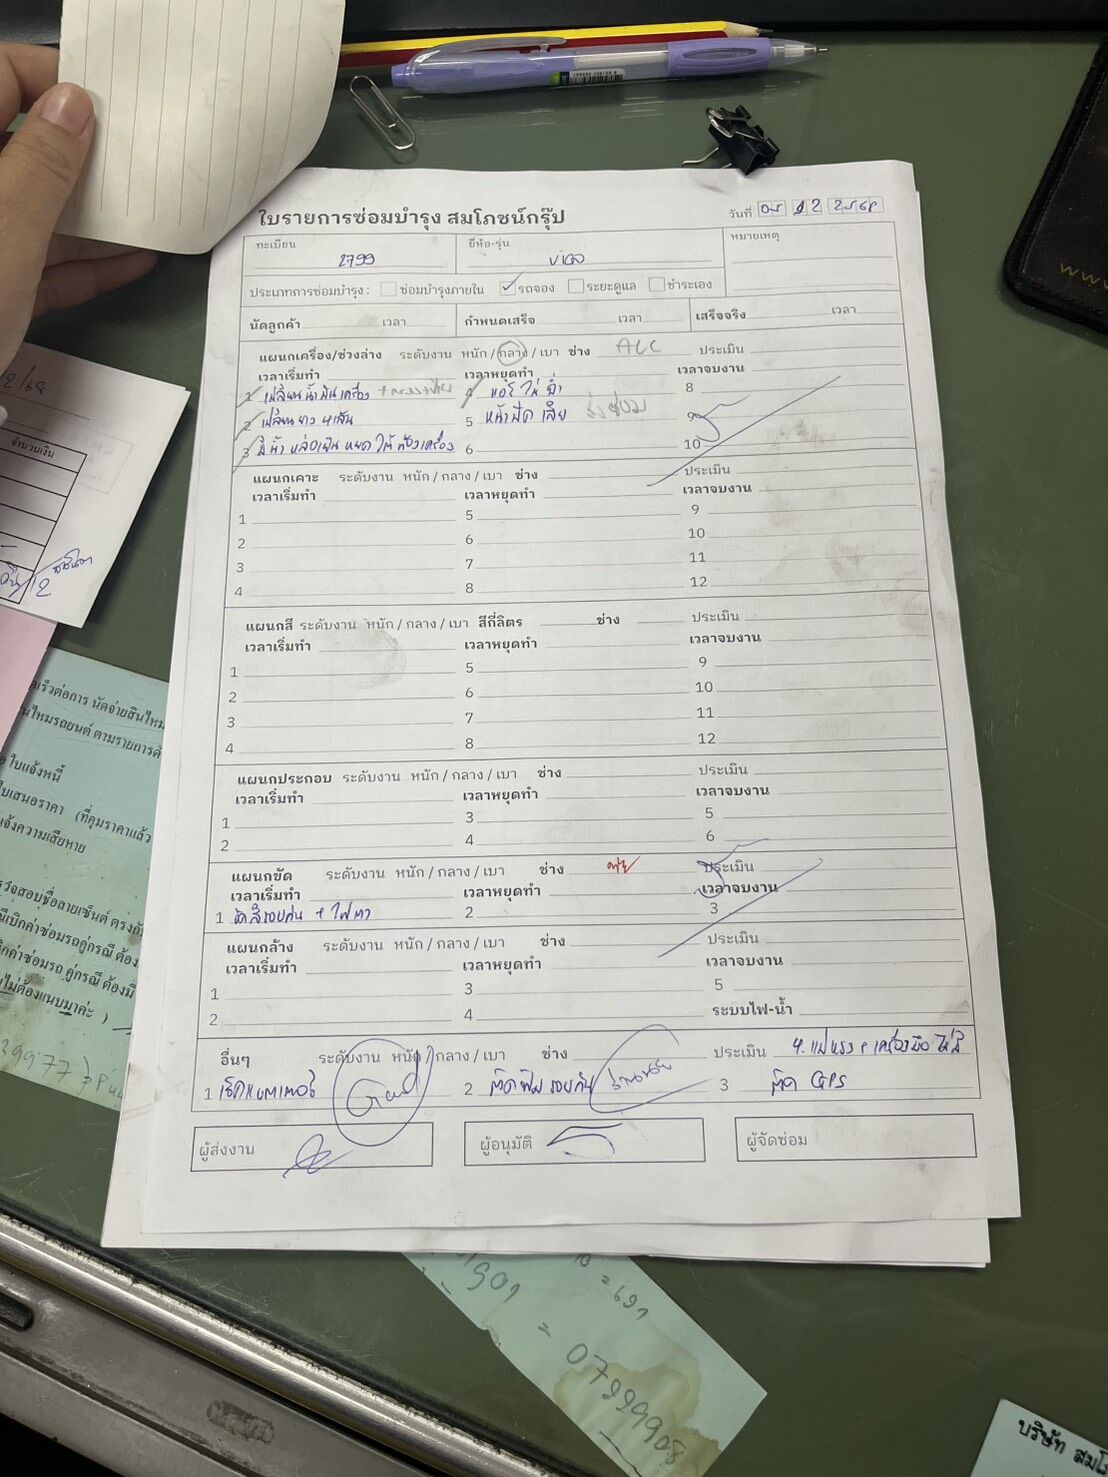 ใบรายการซ่อมบำรุง สมโภชน์กรุ๊ป
วันที่ 05 12 2568
ทะเบียน 2799
ยี่ห้อ-รุ่น
หมายเหตุ
ประเภทการซ่อมบำรุง : ซ่อมบำรุงภายใน รถจอง ระยะดูแล ชำระเอง
นัดลูกค้า เวลา กำหนดเสร็จ เวลา เสร็จจริง เวลา
แผนกเครื่อง/ช่วงล่าง ระดับงาน หนัก / กลาง / เบา ช่าง ประเมิน
เวลาเริ่มทำ เวลาหยุดทำ เวลาจบงาน
1 เปลี่ยนน้ำมันเครื่อง 4 แอร์ ไม่ ฉ่ำ 8
2 เปลี่ยน ยาง 5 หน้าปัด เสีย ส่งซ่อม 9
3 มี น้ำ หล่อเย็น หยด ใต้ ห้องเครื่อง 6 10
แผนกเคาะ ระดับงาน หนัก / กลาง / เบา ช่าง ประเมิน
เวลาเริ่มทำ เวลาหยุดทำ เวลาจบงาน
1 5 9
2 6 10
3 7 11
4 8 12
แผนกสี ระดับงาน หนัก / กลาง / เบา สีกี่ลิตร ช่าง ประเมิน
เวลาเริ่มทำ เวลาหยุดทำ เวลาจบงาน
1 5 9
2 6 10
3 7 11
4 8 12
แผนกประกอบ ระดับงาน หนัก / กลาง / เบา ช่าง ประเมิน
เวลาเริ่มทำ เวลาหยุดทำ เวลาจบงาน
1 3 5
2 4 6
แผนกขัด ระดับงาน หนัก / กลาง / เบา ช่าง ประเมิน
เวลาเริ่มทำ เวลาหยุดทำ เวลาจบงาน
1 ขัดสีรอบคัน + ไฟตา 2 3
แผนกล้าง ระดับงาน หนัก / กลาง / เบา ช่าง ประเมิน
เวลาเริ่มทำ เวลาหยุดทำ เวลาจบงาน
1 3 5
2 4 ระบบไฟ-น้ำ
อื่นๆ ระดับงาน หนัก / กลาง / เบา ช่าง ประเมิน 4. แม่แรง + เครื่องมือ ไม่มี
1 เช็คแบตเตอรี่ 2 ติดฟิล์มรอบคัน 3 ติด GPS
ผู้ส่งงาน ผู้อนุมัติ ผู้จัดซ่อม
จำนวนเงิน
ใบแจ้งหนี้
ใบเสนอราคา (ที่คุมราคาแล้ว
แจ้งความเสียหาย
07999908
บริษัท